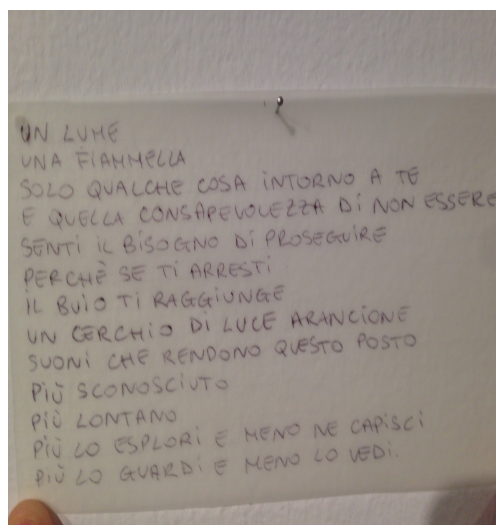 UN LUME
UNA FIAMMELLA
SOLO QUALCHE COSA INTORNO A TE
E QUELLA CONSAPEVOLEZZA DI NON ESSERE
SENTI IL BISOGNO DI PROSEGUIRE
PERCHÈ SE TI ARRESTI
IL BUIO TI RAGGIUNGE
UN CERCHIO DI LUCE ARANCIONE
SUONI CHE RENDONO QUESTO POSTO
PIÙ SCONOSCIUTO
PIÙ LONTANO
PIÙ LO ESPLORI E MENO NE CAPISCI
PIÙ LO GUARDI E MENO LO VEDI.